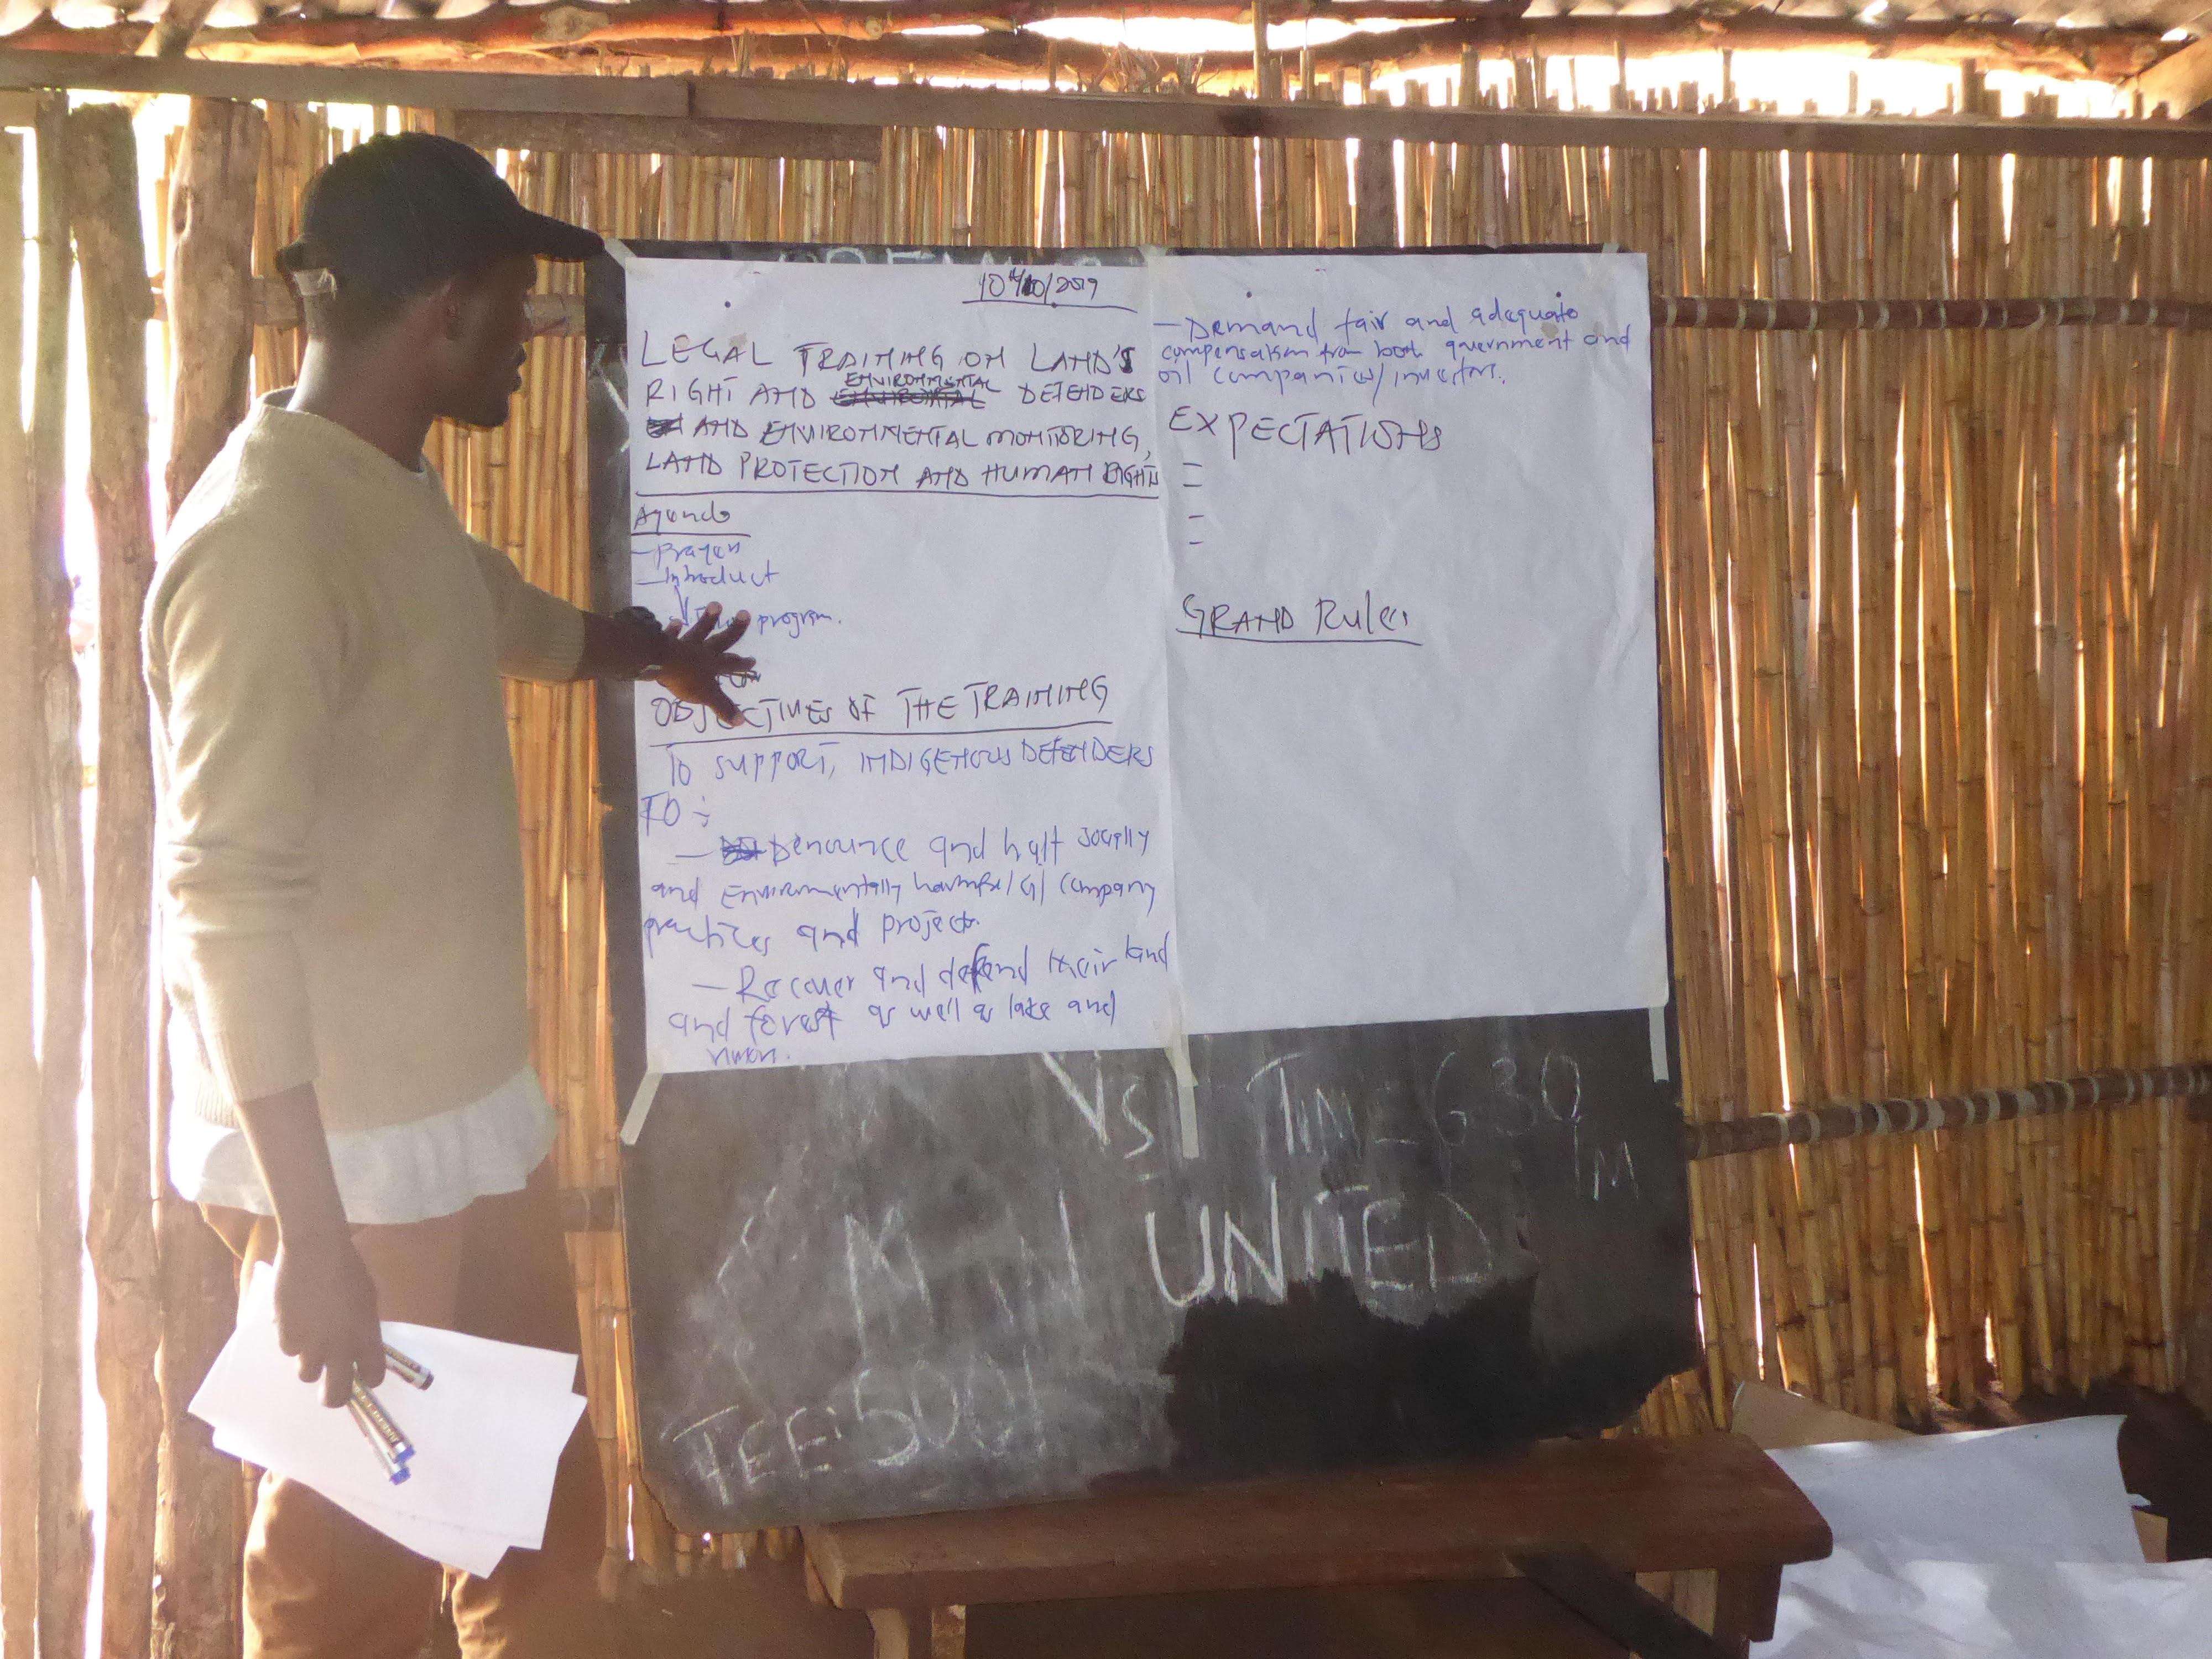 10th/10/2019
LEGAL TRAINING ON LAND'S
RIGHT AND ENVIRONMENTAL DEFENDERS
AND ENVIRONMENTAL MONITORING,
LAND PROTECTION AND HUMAN RIGHTS
Agenda
- prayer
- Introduct
program.
OBJECTIVES OF THE TRAINING
TO SUPPORT, INDIGENOUS DEFENDERS
TO :
- Denounce and halt socially
and Environmentally company
practices and project.
- Recover and defend their land
and forest as well as lake and
- Demand fair and adequate
compensation from both government and
oil companies/investors.
EXPECTATIONS
=
=
=
GRAND Rules
Vs TIME 630
PM
MAN UNITED
FEE: 500/